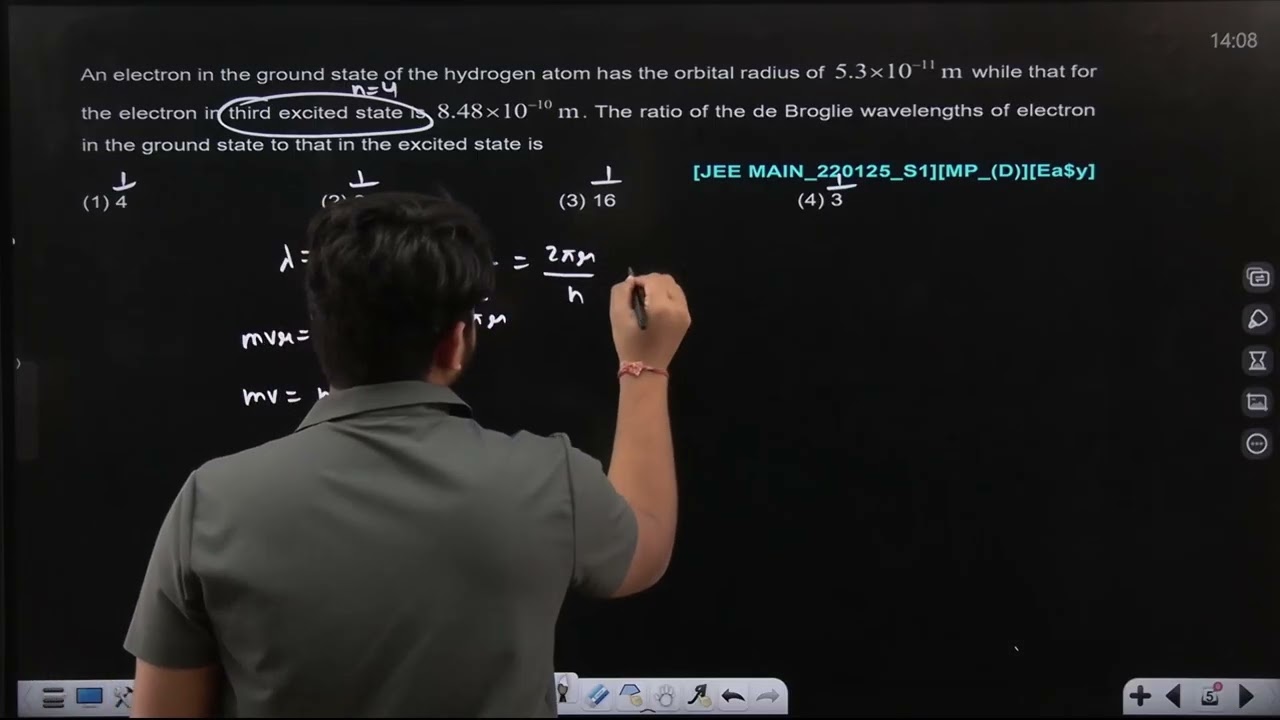 14:08
An electron in the ground state of the hydrogen atom has the orbital radius of 5.3×10⁻¹¹ m while that for
n=4
the electron in third excited state is 8.48×10⁻¹⁰ m. The ratio of the de Broglie wavelengths of electron
in the ground state to that in the excited state is
[JEE MAIN_220125_S1][MP_(D)][Ea$y]
(1) 1/4 (2) 1/ (3) 1/16 (4) 1/3
λ= = 2πr/n
mvr= πr
mv=
5